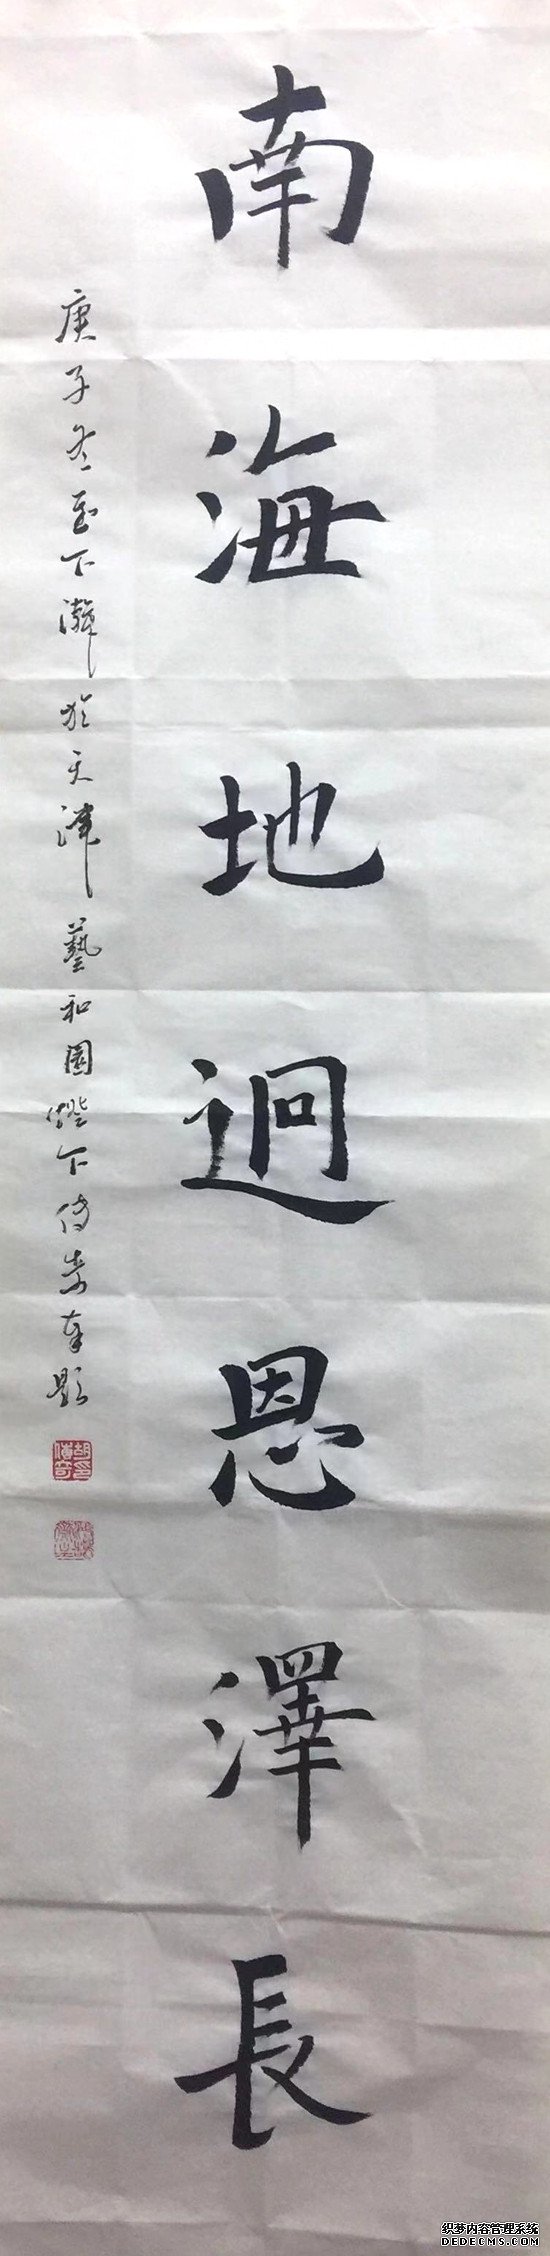 南海地迥恩澤長
庚子冬至下澣於天津藝和園燈下傳奇題
胡傳奇印
织梦内容管理系统
DEDECMS.COM